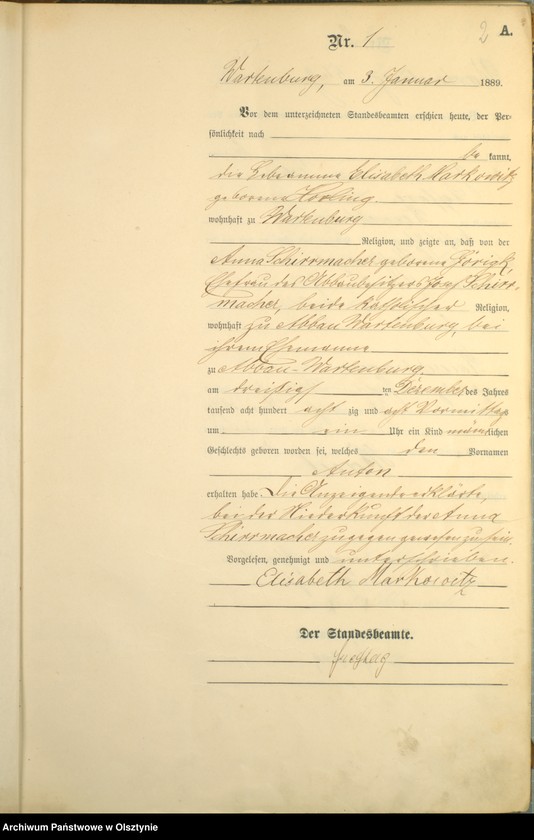 2 A.
Nr. 1
Wartenburg, am 3. Januar 1889.
Vor dem unterzeichneten Standesbeamten erschien heute, der Per-
sönlichkeit nach
be kannt,
die Hebeamme Elisabeth Markowitz
geborene
wohnhaft zu Wartenburg
Religion, und zeigte an, daß von der
Anna Schirrmacher geborene Görigk,
Ehefrau des Abbaubesitzers Josef Schirr-
macher, beide katholischer Religion,
wohnhaft zu Abbau Wartenburg, bei
ihrem Ehemanne
zu Abbau-Wartenburg
am dreißigsten Dezember des Jahres
tausend acht hundert acht zig und acht Vormittags
um ein Uhr ein Kind männlichen
Geschlechts geboren worden sei, welches den Vornamen
Anton
erhalten habe. Die Anzeigende erklärte,
bei der Niederkunft der Anna
Schirrmacher zugegen gewesen zu sein.
Vorgelesen, genehmigt und unterschrieben.
Elisabeth Markowitz
Der Standesbeamte.
Archiwum Państwowe w Olsztynie